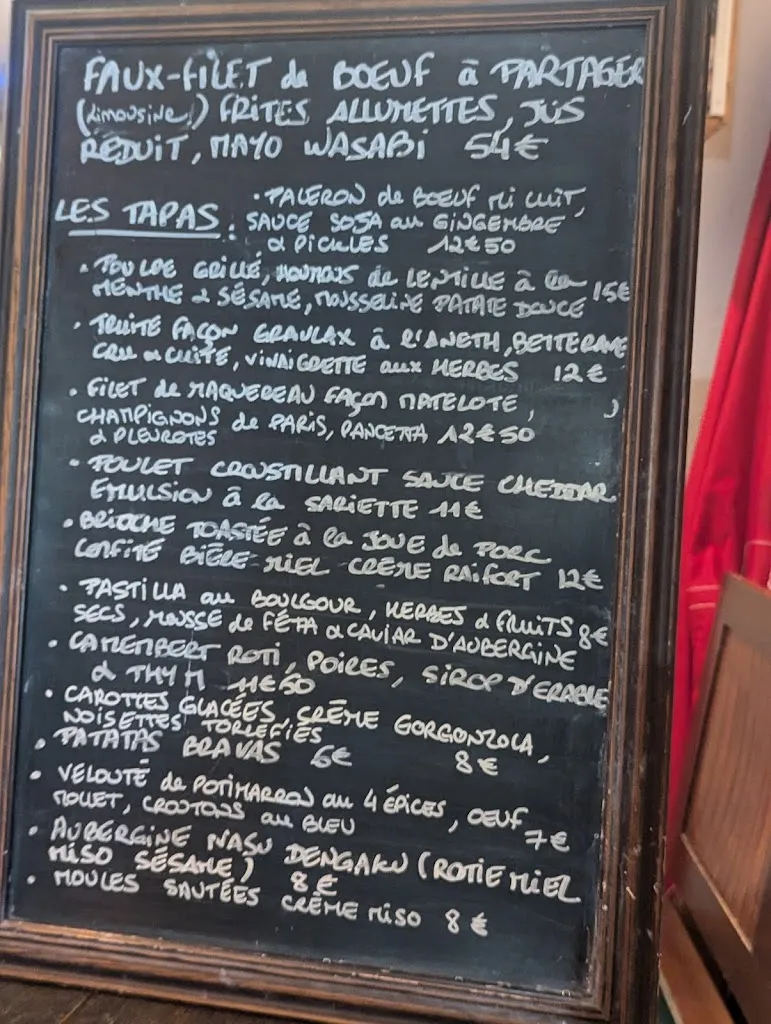 FAUX-FILET de BOEUF à PARTAGER
(Limousine!) FRITES ALLUMETTES, JUS
RÉDUIT, MAYO WASABI 54€
LES TAPAS : • PALERON de BOEUF MI CUIT,
SAUCE SOJA au GINGEMBRE
& PICKLES 12€50
• POULPE GRILLÉ, HOUMOUS de LENTILLE à la 15€
MENTHE & SÉSAME, MOUSSELINE PATATE DOUCE
• TRUITE FAÇON GRAVLAX à l'ANETH, BETTERAVE
CRU & CUITE, VINAIGRETTE aux HERBES 12€
• FILET de MAQUEREAU FAÇON MATELOTE,
CHAMPIGNONS de PARIS, PANCETTA 12€50
& PLEUROTES
• POULET CROUSTILLANT SAUCE CHEDDAR
EMULSION à la SARIETTE 11€
• BRIOCHE TOASTÉE à la JOUE de PORC
CONFITE BIÈRE-MIEL CRÈME RAIFORT 12€
• PASTILLA au BOULGOUR, HERBES & FRUITS 8€
SECS, MOUSSE de FÉTA & CAVIAR D'AUBERGINE
• CAMEMBERT ROTI, POIRES, SIROP D'ERABLE
& THYM 11€50
• CAROTTES GLACÉES, CRÈME GORGONZOLA,
NOISETTES TORLEFIÉS 8€
• PATATAS BRAVAS 6€
• VELOUTÉ de POTIMARRON au 4 ÉPICES, OEUF
MOLLET, CROUTONS au BLEU 7€
• AUBERGINE NASU DENGAKU (ROTIE MIEL
MISO SÉSAME) 8€
• MOULES SAUTÉES CRÈME MISO 8€